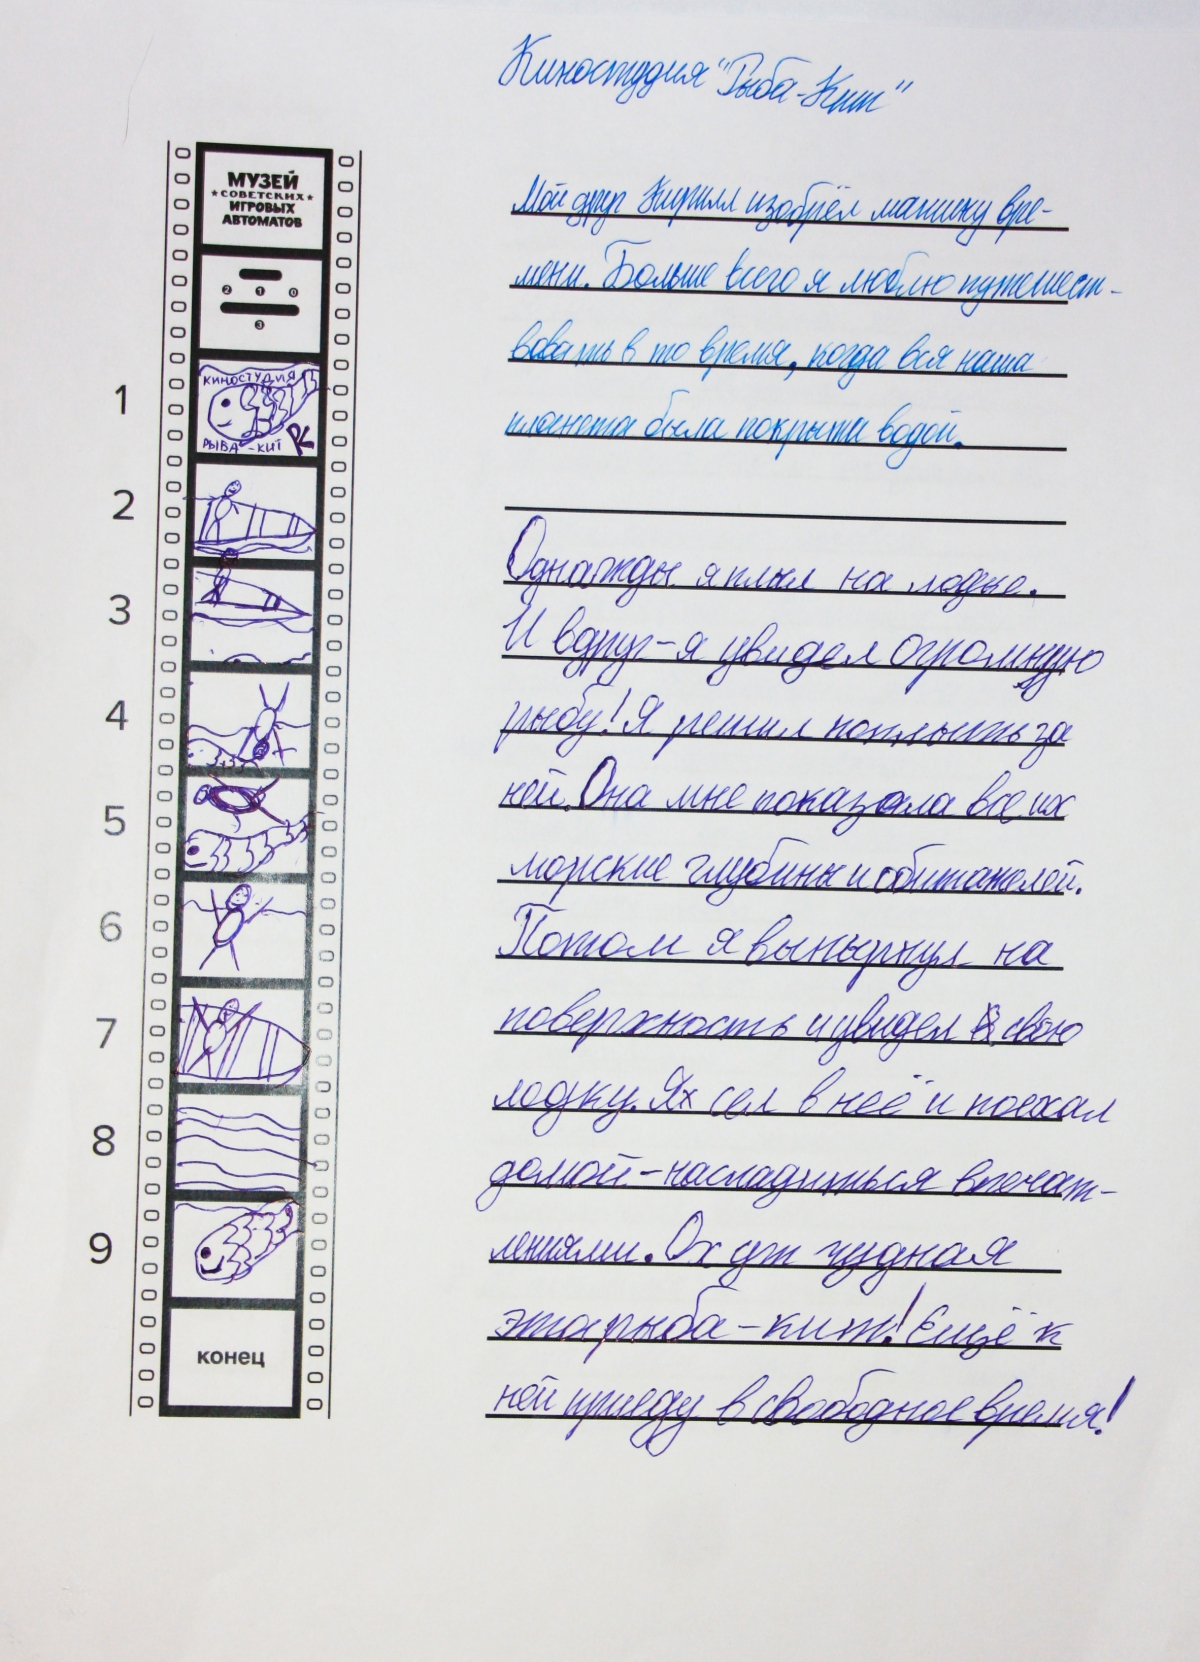 Киностудия "Рыба-Кит"
МУЗЕЙ
★СОВЕТСКИХ★
ИГРОВЫХ
АВТОМАТОВ
2 1 0
3
1
КИНОСТУДИЯ
РЫБА-КИТ РК
2
3
4
5
6
7
8
9
конец
Мой друг Кирилл изобрёл машину вре-
мени. Больше всего я люблю путешест-
вовать в то время, когда вся наша
планета была покрыта водой.
Однажды я плыл на лодке.
И вдруг-я увидел огромную
рыбу! Я решил поплыть за
ней. Она мне показала все их
морские глубины и обитателей.
Потом я вынырнул на
поверхность и увидел свою
лодку. Я сел в неё и поехал
домой-насладиться впечат-
лениями. Ох уж чудная
эта рыба-кит! Ещё к
ней приеду в свободное время!